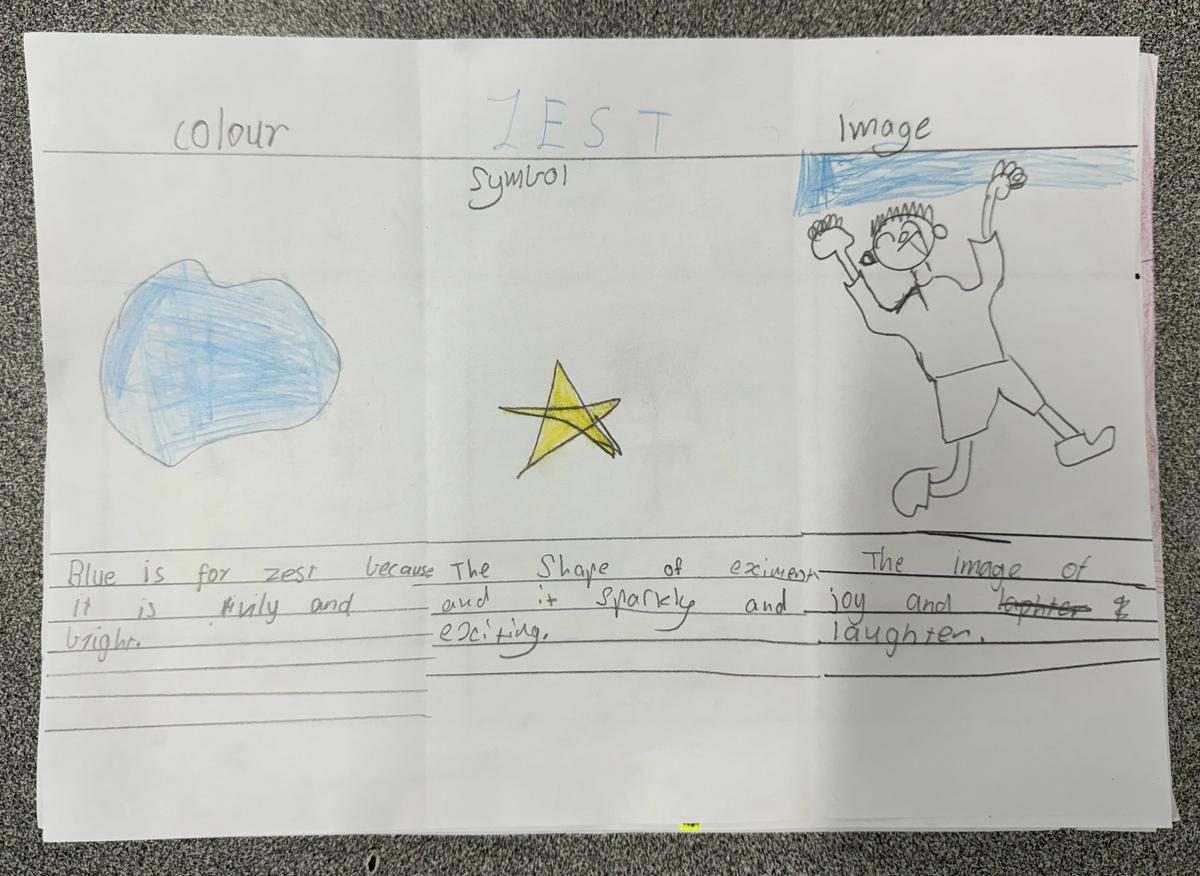 ZEST
colour
Symbol
Image
Blue is for zest because
it is and
bright.
The Shape of eximent
and it Sparkly and
exciting.
The image of
joy and &
laughter.